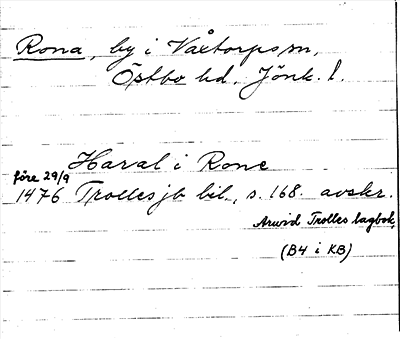 Rona, by i Våxtorps sn,
Östbo hd. Jönk. l.
Haral i Rone
före 29/9
1476 Trolles jb bil., s. 168. avskr.
Arvid Trolles lagbok,
(B4 i KB)